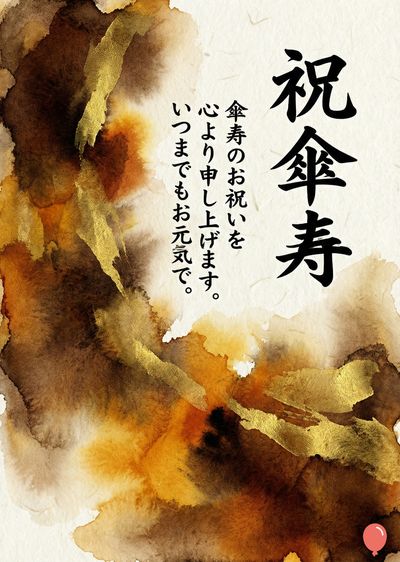 祝傘寿
傘寿のお祝いを
心より申し上げます。
いつまでもお元気で。